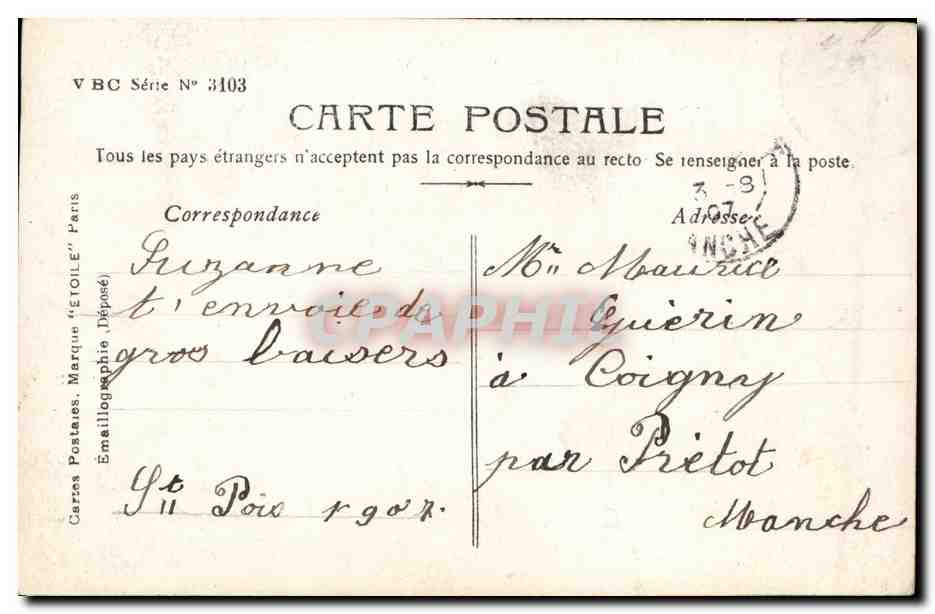 V B C Série Nº 3103
CARTE POSTALE
Tous les pays étrangers n'acceptent pas la correspondance au recto Se renseigner à la poste.
Correspondance
Adresse
3 -8
07
NCHE
Suzanne
t'envoie de
gros baisers
St Pois 1907.
Mr Maurice
Guérin
à Coigny
par Prétot
Manche
Cartes Postales, Marque "ÉTOILE" Paris
Émaillographie (Déposé)
CPAPHIL